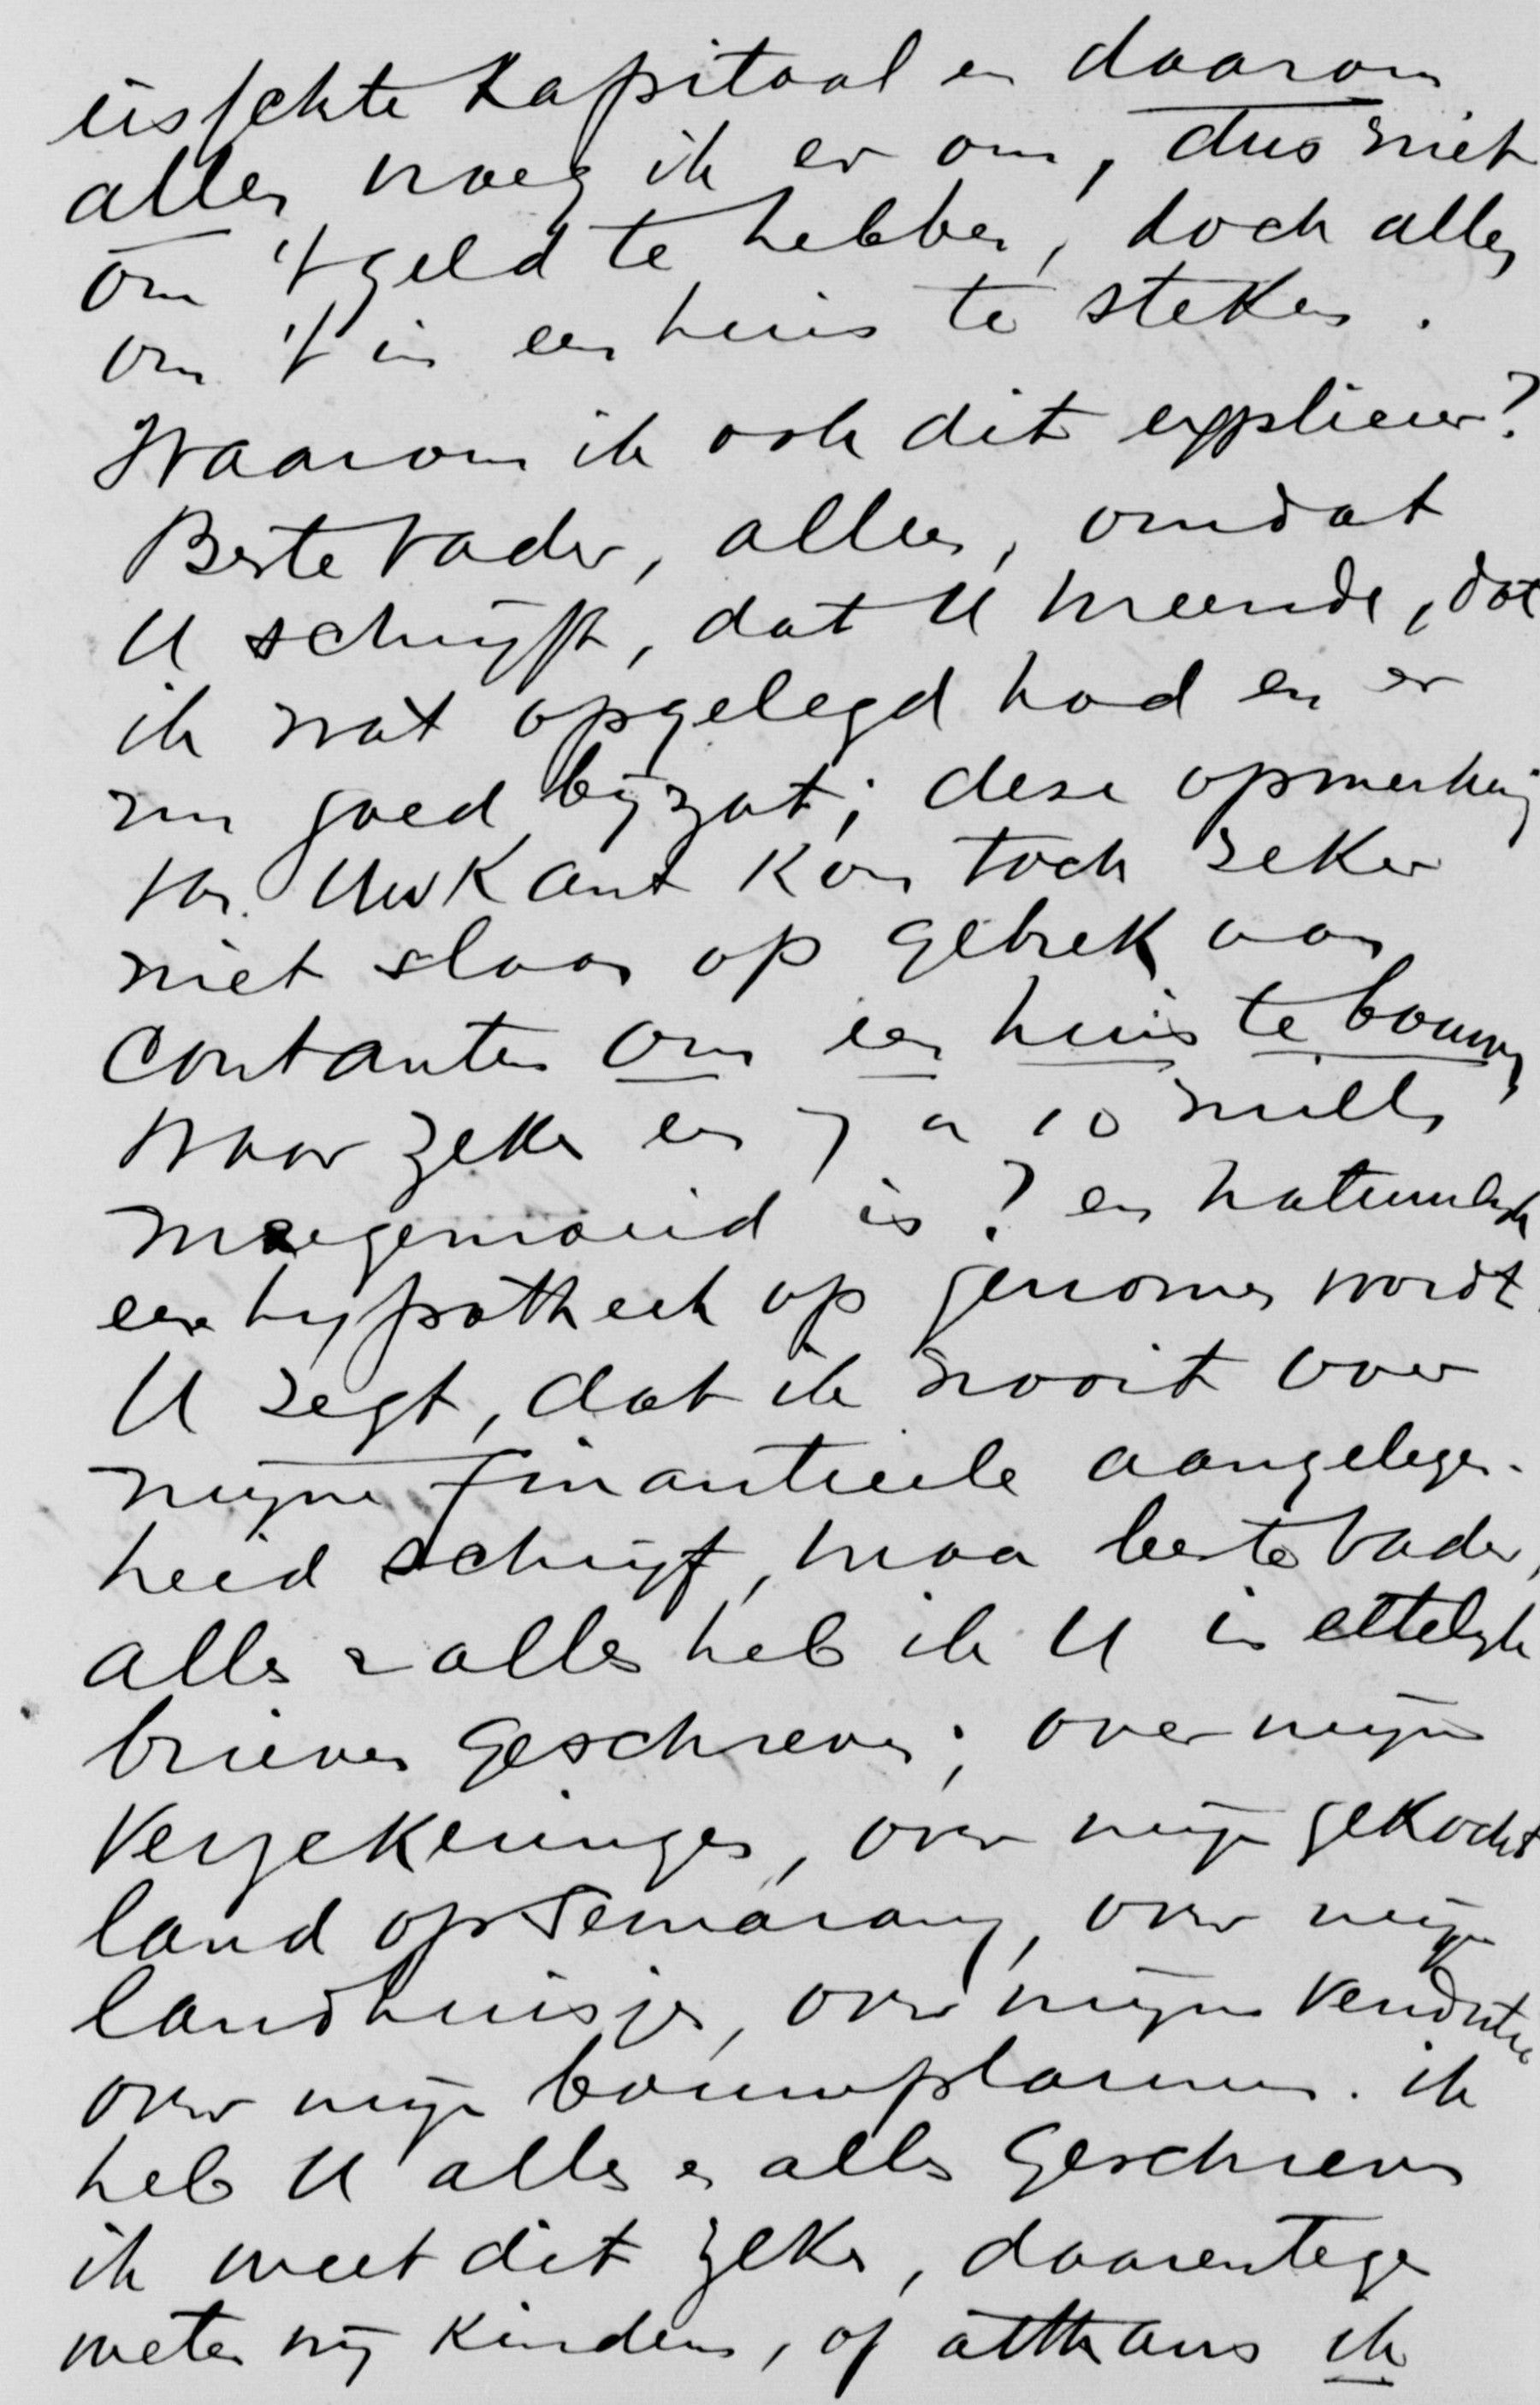 eischte kapitaal en daarom
alleen vroeg ik er om, dus niet
om 't geld te hebben, doch alleen
om 't in een huis te steken.
Waarom ik ook dit expliceer?
Beste Vader, alleen, omdat
U schrijft, dat U meende, dat
ik wat opgelegd had en er
nu goed bijzat; deze opmerking
van Uw kant kon toch zeker
niet slaan op gebrek aan
contanten om een huis te bouwen,
waar zeker een 7 a 10 mille
meegemoeid is? en natuurlijk
een hypotheek op genomen wordt.
U zegt, dat ik nooit over
mijne finantieele aangelegen-
heid schrijf, maar beste Vader,
alles & alles heb ik U in ettelijke
brieven geschreven; over mijne
Verzekeringen, over mijn gekocht
land op Semarang, over mijn
landhuisje, over mijne Vendutie
over mijn bouwplannen. ik
heb U alles en alles geschreven
ik weet dit zeker, daarentegen
weten wij kinderen, of althans ik